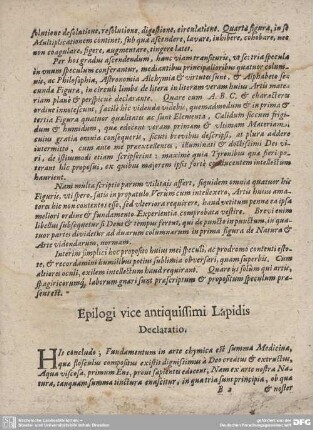 solutione desolatione, resolutione, digestione, circulatione. Quarta figura, in se
Multiplicationem continet, sub qua ascendere, lavare, inhibere, cohobare, nec
non coagulare, figere, augmentare, tingere latet.
Per hos gradus ascendendum, hanc viam transeuri, ut sectria specula
in unum speculum conferantur, mediantibus principalioribus quatuor columnis,
ac Philosophia, Astronomia Alchymia & virtute sint, & Alphabeto secunda
Figura, in circuli limbo de litera in literam veram hujus Artis materiam
plane & perspicue declarante. Quare cum A. B. C. & charactere
ordine innotescunt, facile hic videndo videbis, quemadmodum & in prima &
tertia Figura quatuor qualitates ac sunt Elementa, Calidum siccum frigidum
& humidum, qua educunt veram primam & ultimam Materiam,
cuius gratia omnia consequeris, sicuti brevibus descripsi, at plura addere
intermitto, cum ante me praexcellentes, illuminati & doctissimi Deo viri,
de istiusmodi etiam scripserint: maxime quia Tyronibus qua fieri poterant
hic proposui, ex quibus majorem ipsi forte conducentem intellectum
haurient.
Nam multa scriptio parum utilitatis affert, siquidem omnia quatuor his
Figuris, uti spero, satis in propatulo. Verum cum intellecto, Artis hujus amatores
hic non contentes esse, sed ulteriora requirere, haud vetitum penna ea ipsa
meliori ordine & fundamento Experientia comprobata vestire. Brevi enim
libellus subsequetur si Deo & tempus ferent, qui de puncto in punctum, in quatuor
parte dividetur ad duarum columnarum in prima figura de Natura &
Arte videndarum, normam.
Interim simplici hoc proposito hujus mei speculi, ac prodromo contenti estote,
& recordamini humilibus potius sublimia obversari, quam superbis. Cum
altiores oculi, exilem intellectum haud requirant. Quare ijs solum qui artis,
spagiricorumq; laborum gnari sunt praescriptum & propositum speculum praesens
est.
Epilogi vice antiquissimi Lapidis
Declaratio.
HIs concludo, Fundamentum in arte chymica est summa Medicina,
qua flosculus compositus existis dignissimus à Deo creatus & extructus,
Aqua viscosa, primum Ens, prout sapientes edocent, Nam ex arte nostra Natura,
tanquam summa tinctura exuscitur, in qua tria sunt principia, ob qua
B 2
& noster